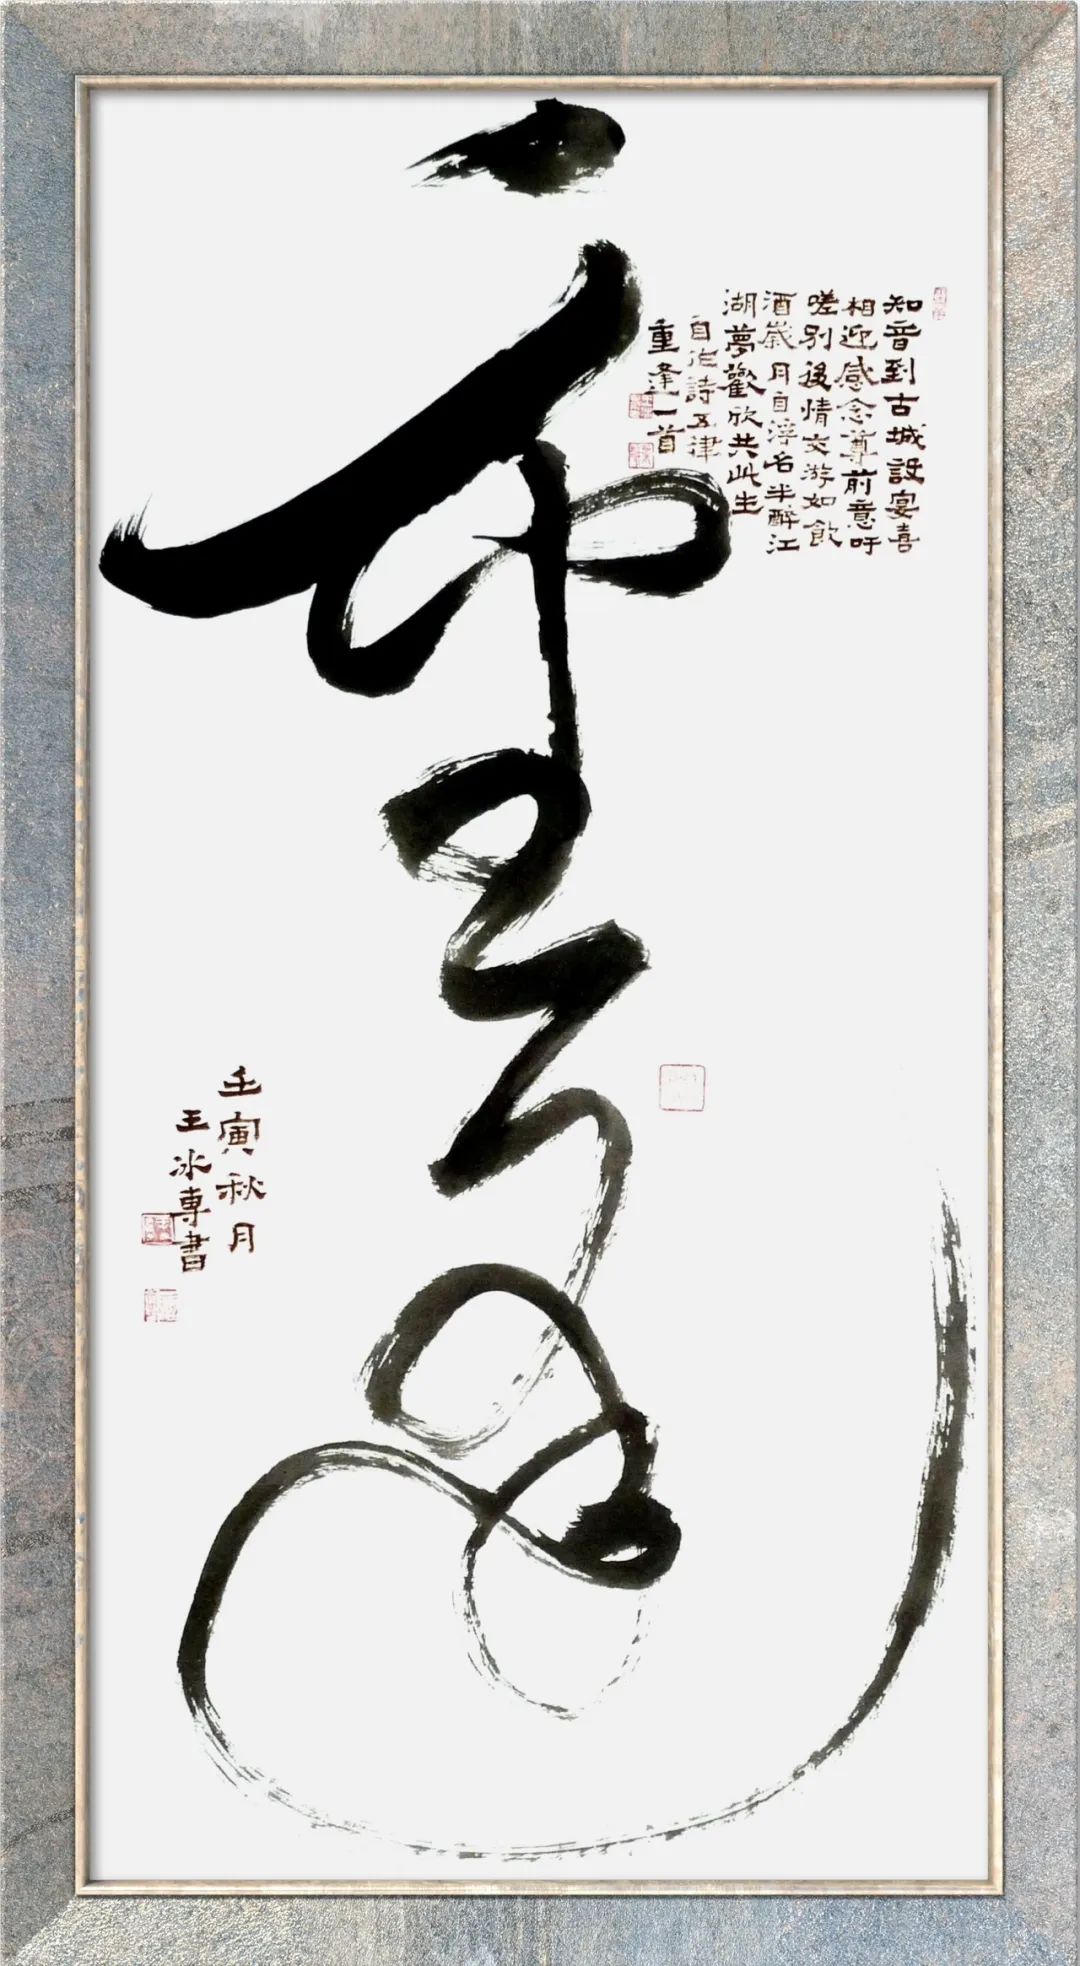 知音到古城設宴喜
相迎感念尊前意吁
嗟別後情交游如飲
酒歲月自浮名半醉江
湖夢歡欣共此生
自作詩五律
重逢一首
壬寅秋月
王冰專書